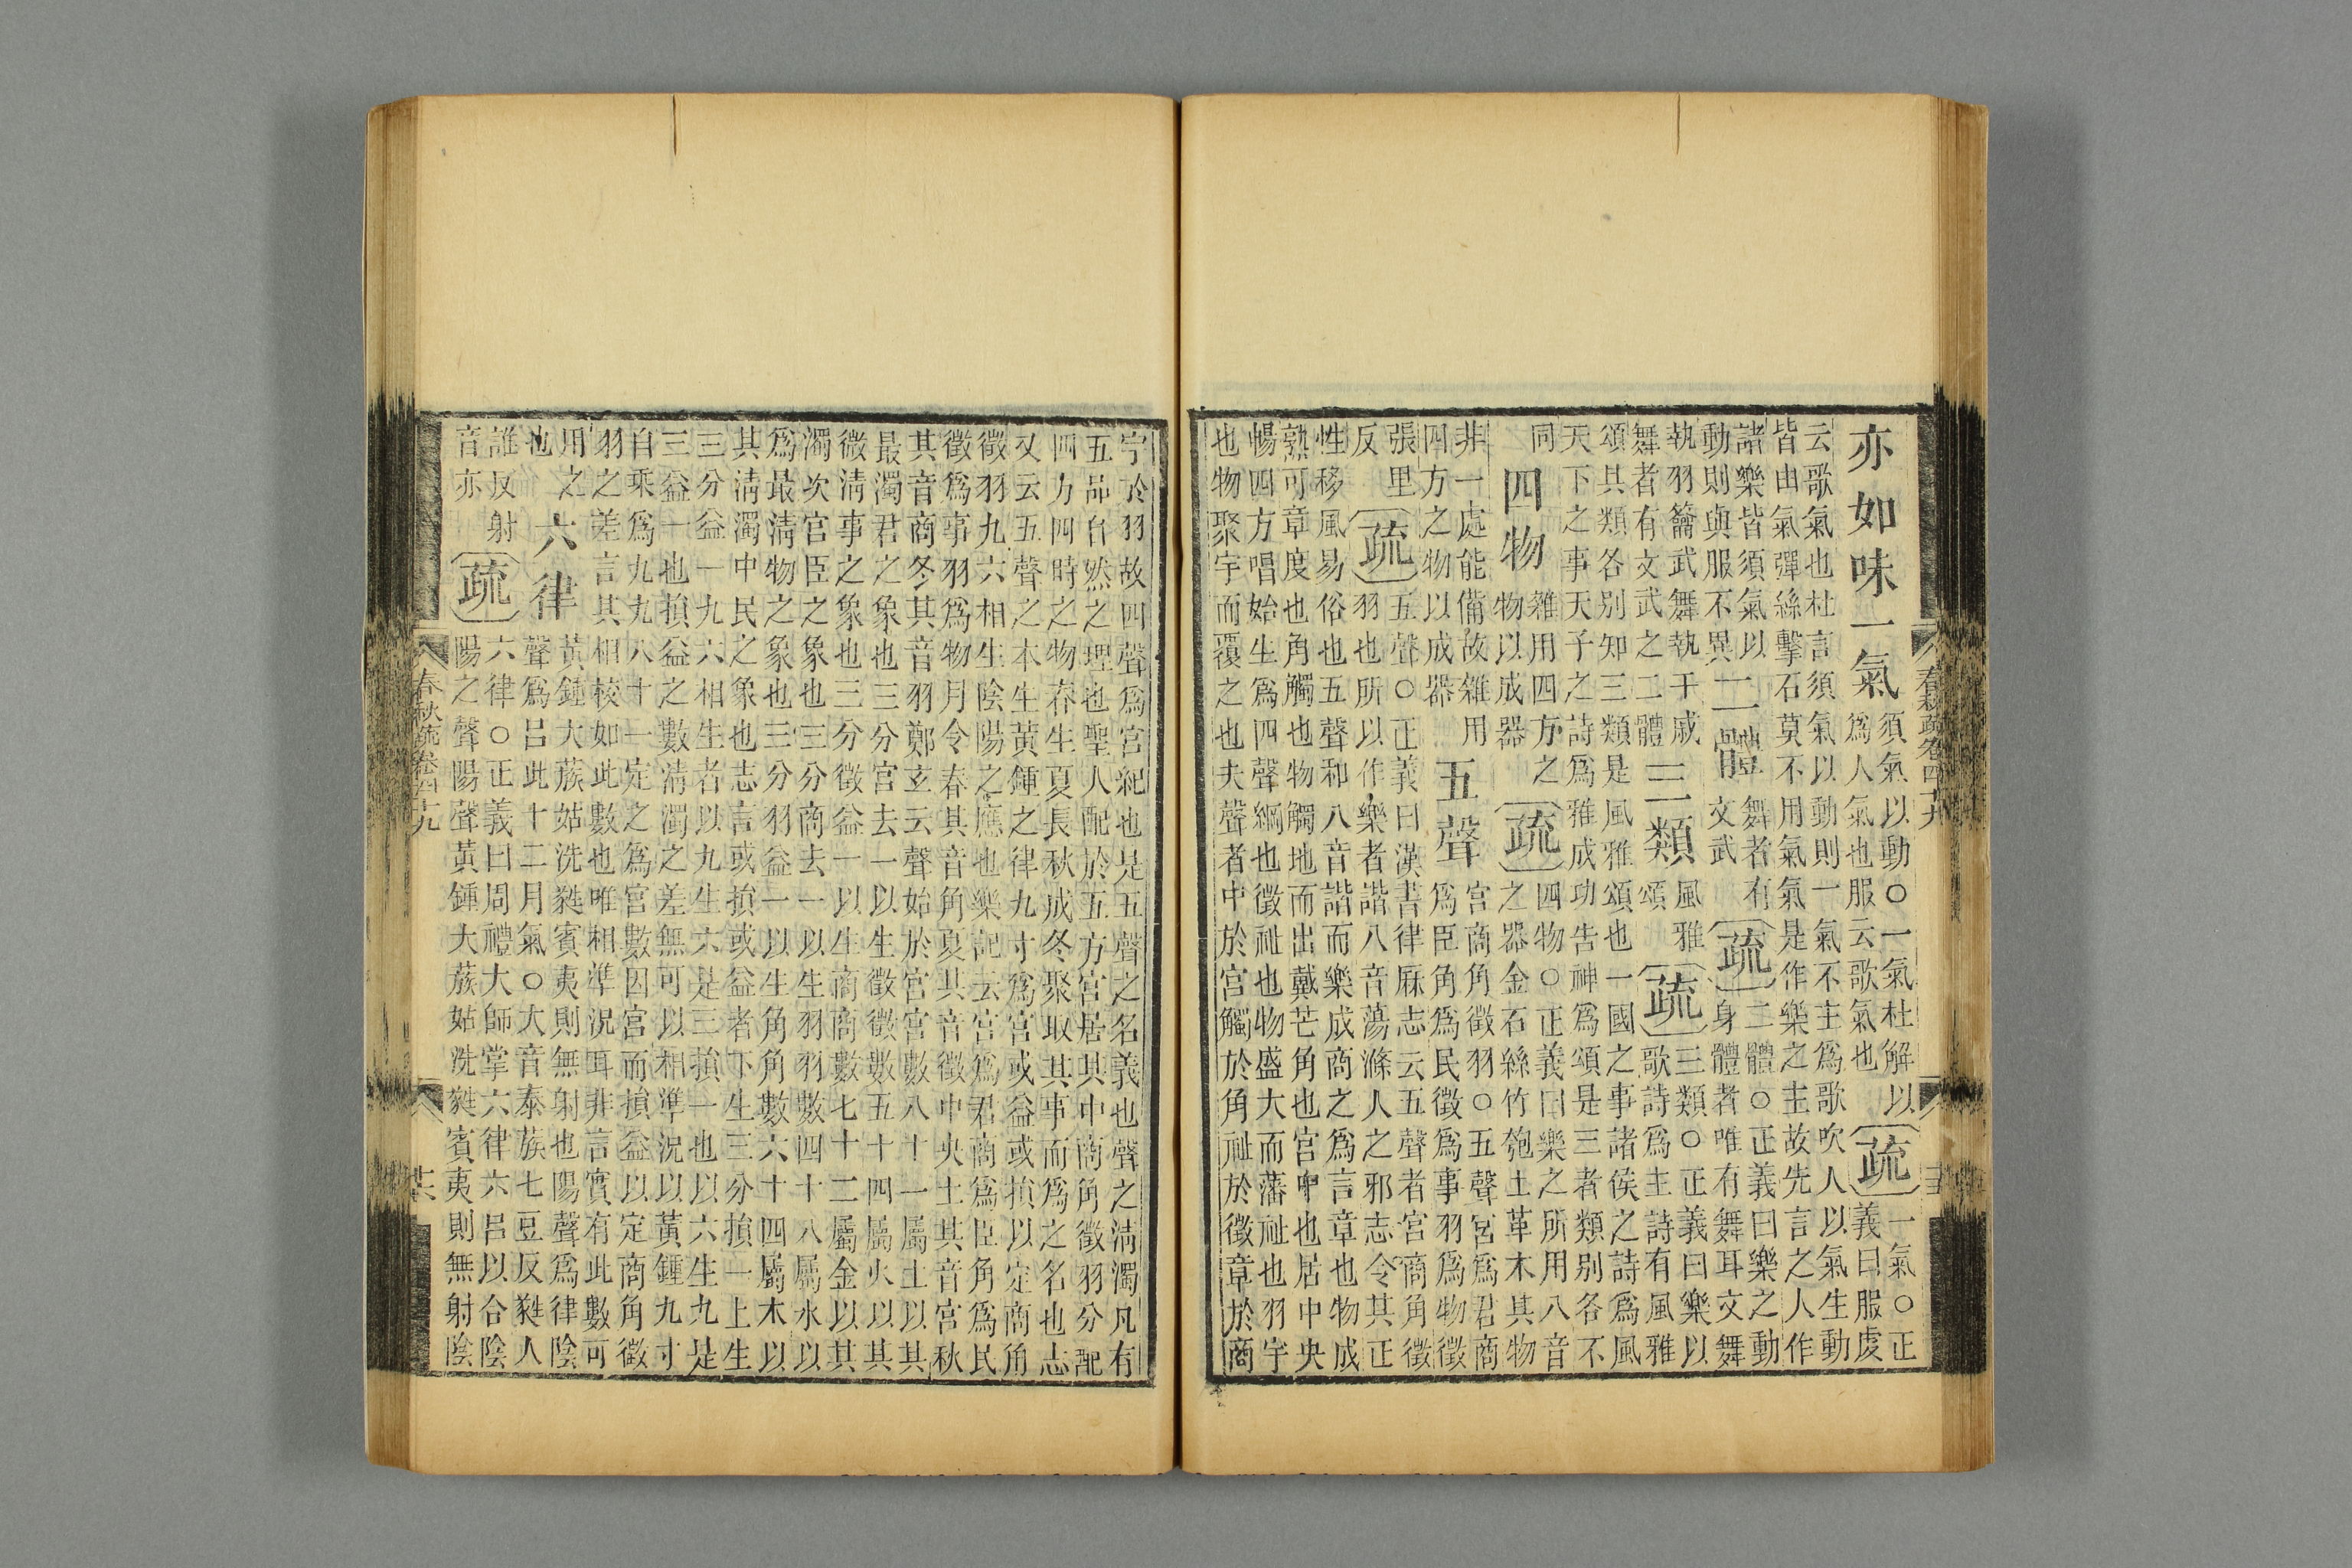 亦如味一氣須氣以動○一氣杜解以
爲人氣也服云歌氣也疏一氣○正
義曰服虔
云歌氣也杜言須氣以動則一氣不主爲歌吹人以氣生動
皆由氣彈絲擊石莫不用氣氣是作樂之主故先言之人作
諸樂皆須氣以
動則與服不異二體舞者有
文武疏二體○正義曰樂之動
身體者唯有舞耳文舞
執羽籥武舞執干戚
舞者有文武之二體三類風雅
頌疏三類○正義曰樂以
歌詩爲主詩有風雅
頌其類各別知三類是風雅頌也一國之事諸侯之詩爲風
天下之事天子之詩爲雅成功告神爲頌是三者類別各不
同四物雜用四方之
物以成器疏四物○正義曰樂之所用八音
之器金石絲竹匏土革木其物
非一處能備故雜用
四方之物以成器五聲宮商角徵羽○五聲宮爲君商
爲臣角爲民徵爲事羽爲物徵
張里
反疏五聲○正義曰漢書律厤志云五聲者宮商角徵
羽也所以作樂者諧八音蕩滌人之邪志令其正
性移風易俗也五聲和八音諧而樂成商之爲言章也物成
熟可章度也角觸也物觸地而出戴芒角也宮中也居中央
暢四方唱始生爲四聲綱也徵祉也物盛大而蕃祉也羽宇
也物聚宇而覆之也夫聲者中於宮觸於角祉於徵章於商
宇於羽故四聲爲宮紀也是五聲之名義也聲之清濁凡有
五品自然之理也聖人配於五方宮居其中商角徵羽分配
四方四時之物春生夏長秋成冬聚取其事而爲之名也志
又云五聲之本生黃鍾之律九寸爲宮或益或損以定商角
徵羽九六相生陰陽之應也樂記云宮爲君商爲臣角爲民
徵爲事羽爲物月令春其音角夏其音徵中央土其音宮秋
其音商冬其音羽鄭玄云聲始於宮宮數八十一屬土以其
最濁君之象也三分宮去一以生徵徵數五十四屬火以其
徵清事之象也三分徵益一以生商商數七十二屬金以其
濁次宮臣之象也三分商去一以生羽羽數四十八屬水以
爲最清物之象也三分羽益一以生角角數六十四屬木以
其清濁中民之象也志言或損或益者下生三分損一上生
三分益一九六相生者以九生六是三損一也以六生九是
三益一也損益之數清濁之差無可以相準況以黃鍾九寸
自乘爲九九八十一定之爲宮數因宮而損益以定商角徵
羽之差言其相校如此數也唯相準況耳非言實有此數可
用之
也六律黃鍾大蔟姑洗蕤賓夷則無射也陽聲爲律陰
聲爲呂此十二月氣○大音泰蔟七豆反蕤人
誰反射
音亦疏六律○正義曰周禮大師掌六律六呂以合陰
陽之聲陽聲黃鍾大蔟姑洗蕤賓夷則無射陰
春秋疏卷四十九